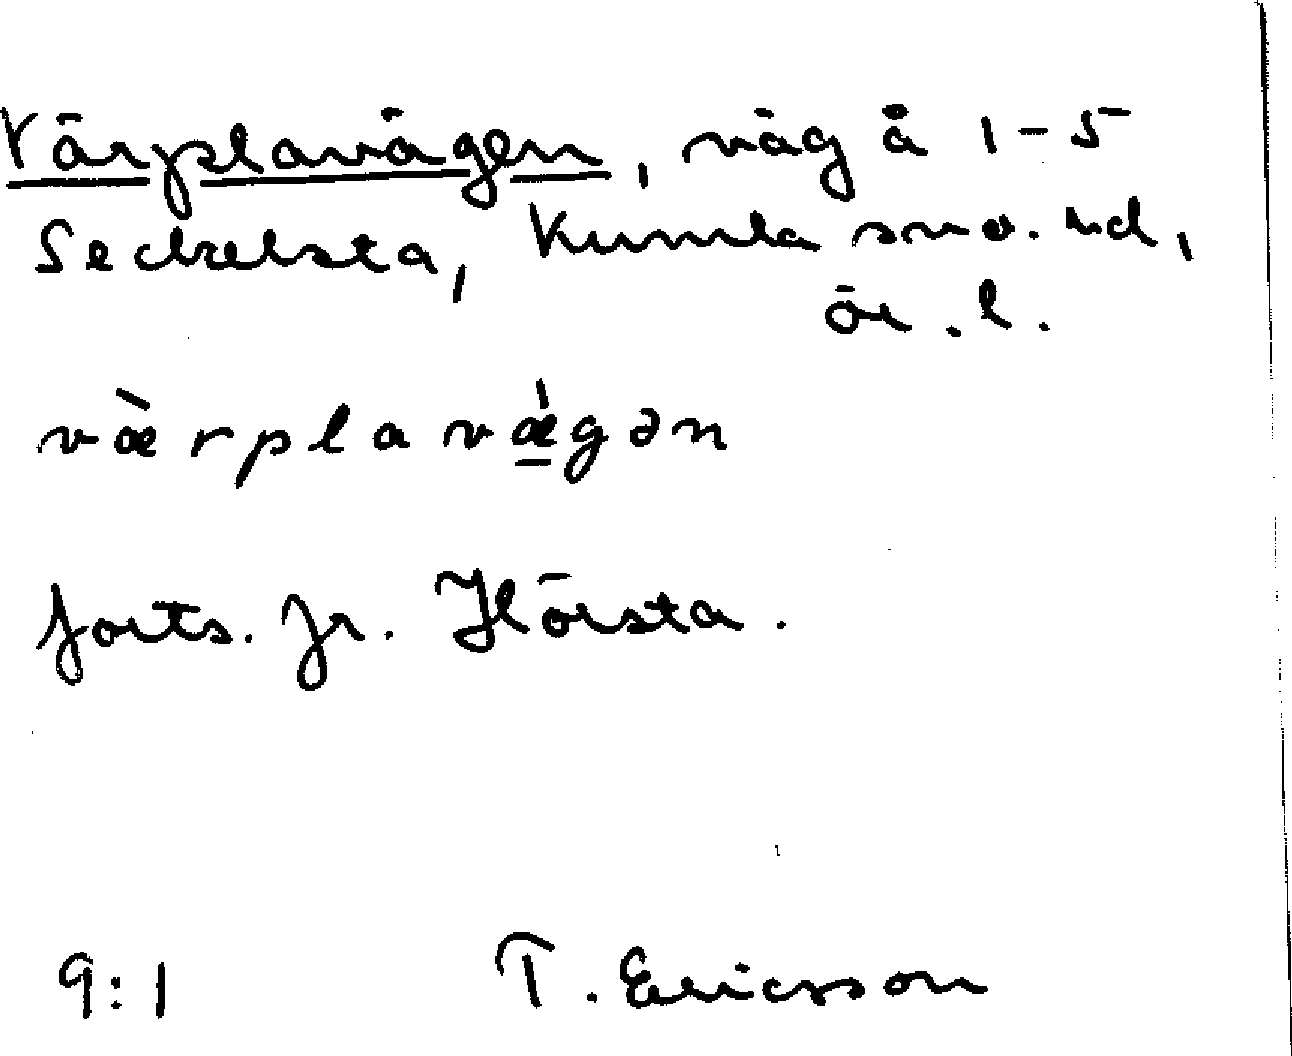 Värplavägen, väg å 1-5
Seckelsta, Kumla snv. ud,
ör. l.
væ̀rplavǽgən
forts. fr. Hörsta.
9:1 T. Ericsson